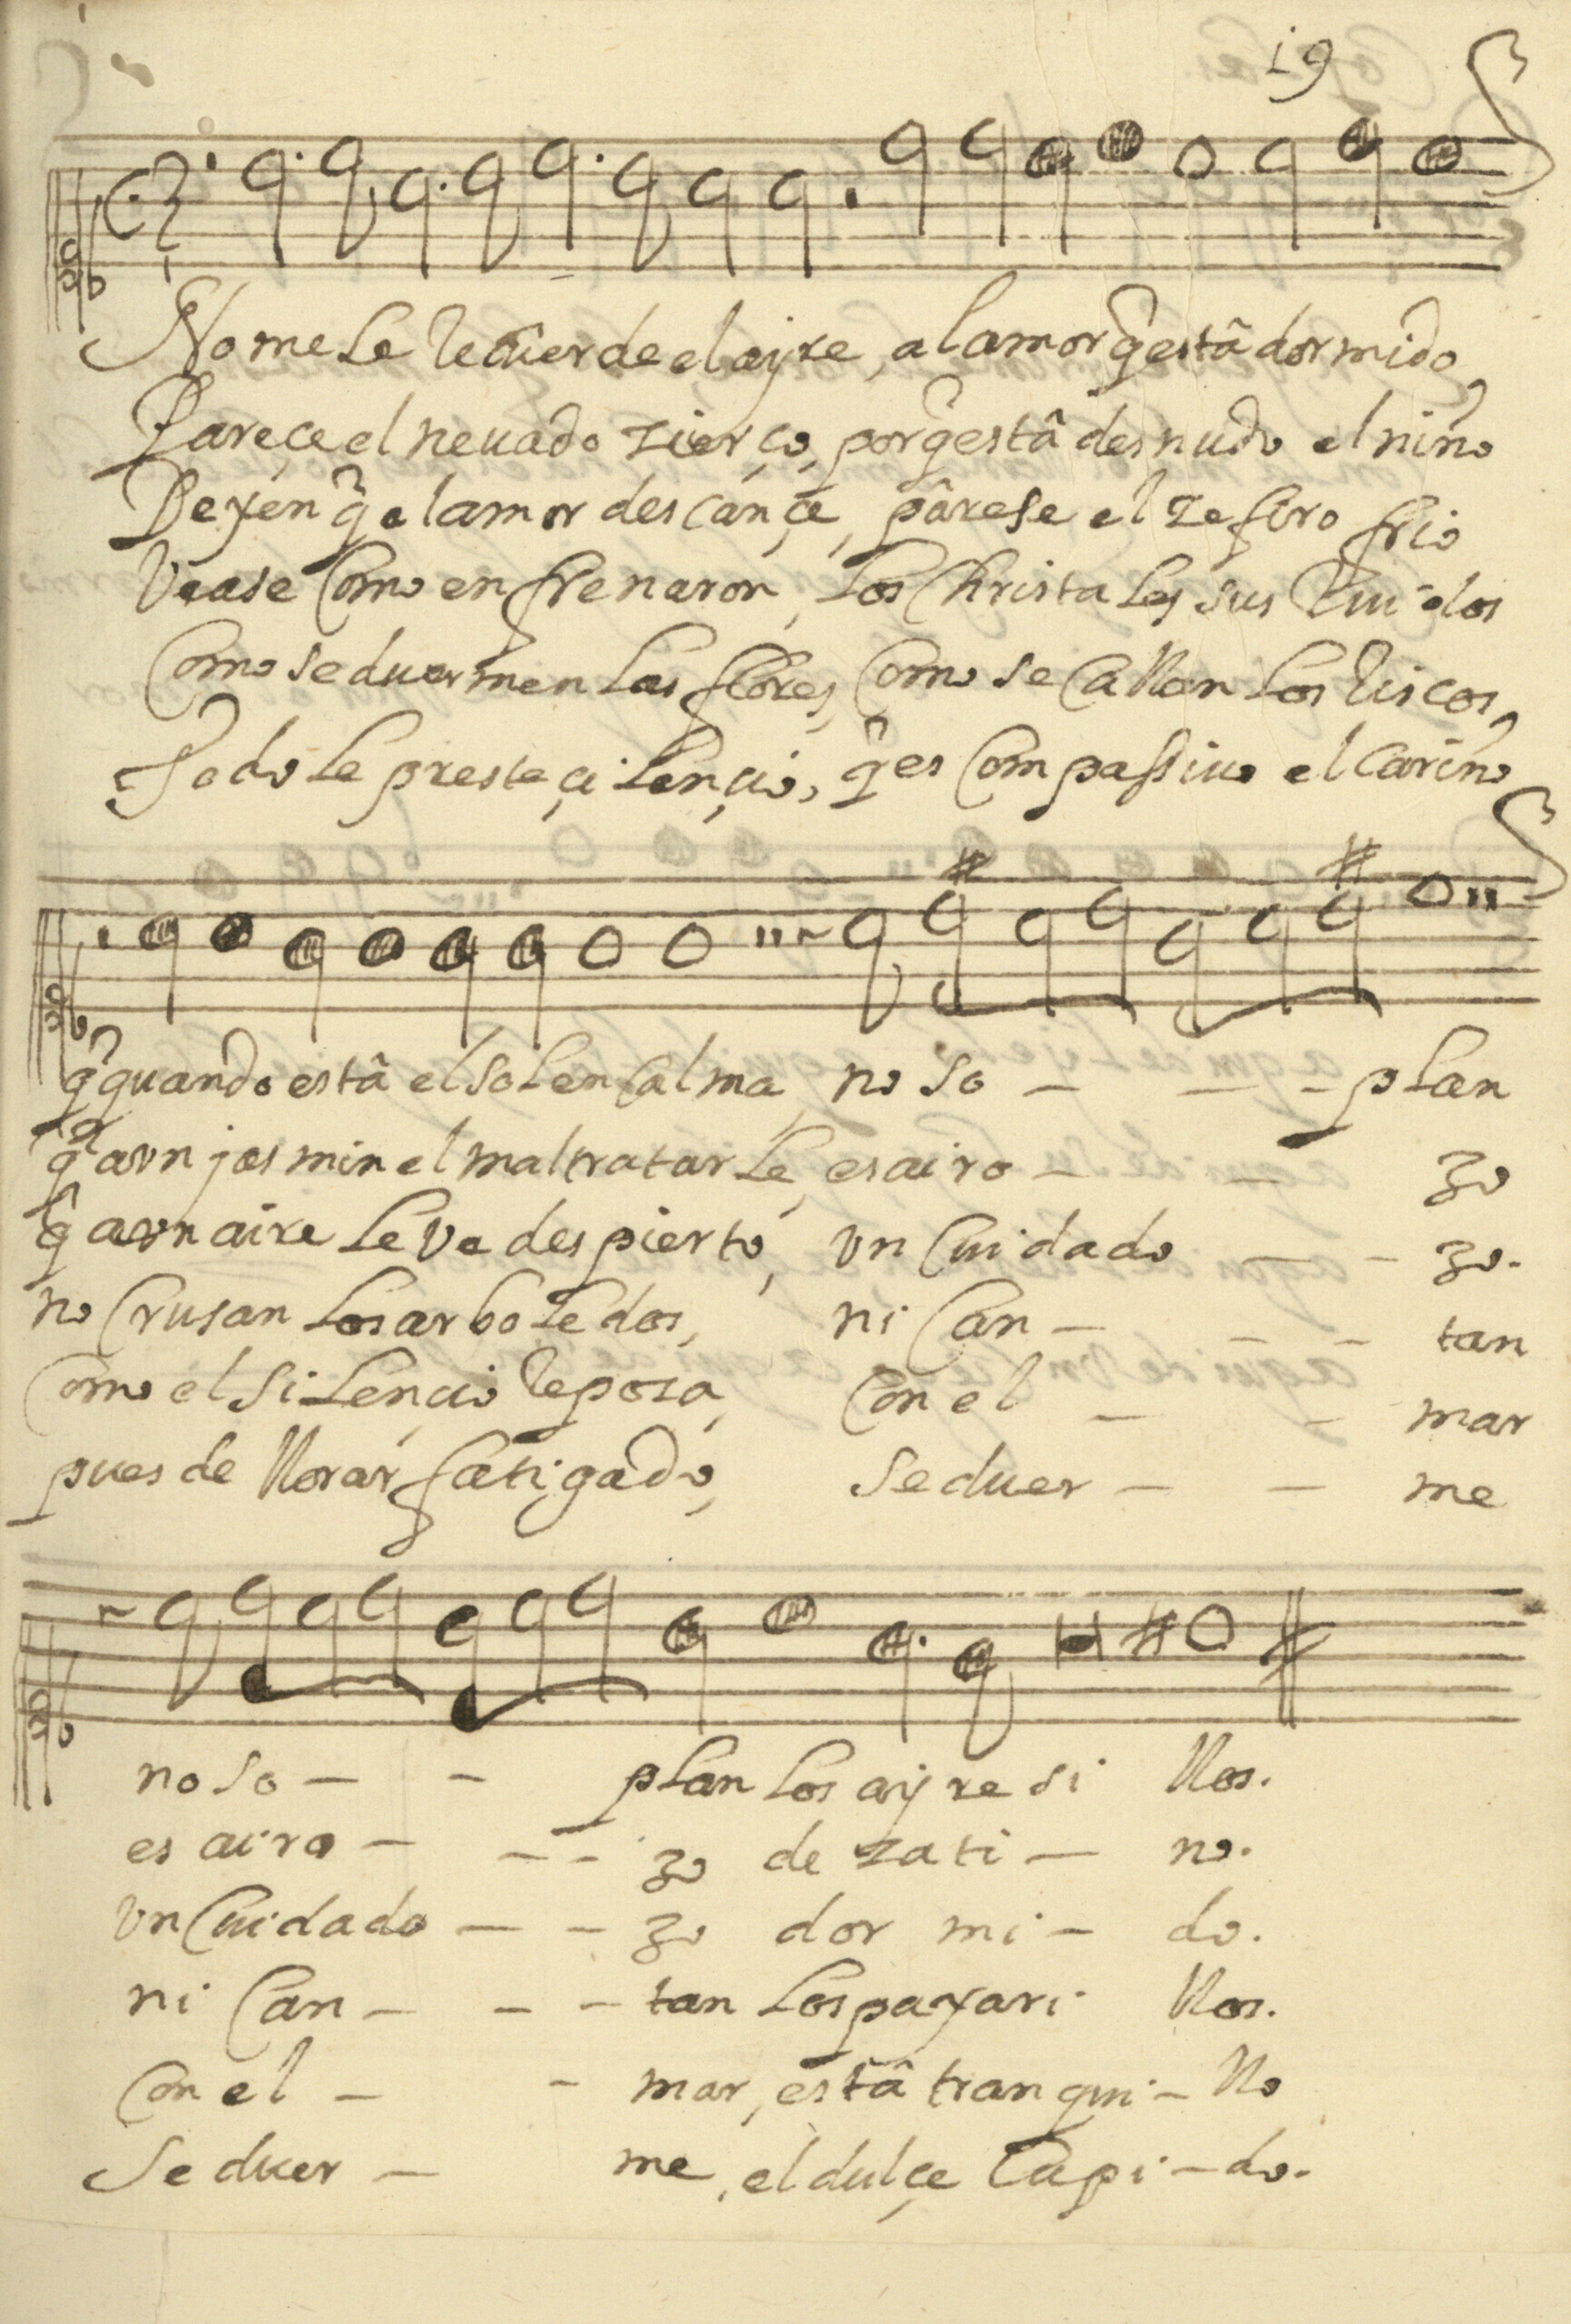 19
No me le recuerde el ayre, al amor q̃ estâ dormido,
Pareçe el neuado zierço, porq̃ estâ desnudo el niño
Dexen q̃ el amor descançe, pârese el zefiro frio
Vease Como enfrenaron, los Christales sus Ruidos
Como se duermen las flores, Como se Callan los Riscos,
Todo le preste çilençio, q̃ es Compassiuo el Cariño
q̃ quando estâ el sol en Calma no so - - - plan
q̃ a vn jasmin el maltratarle, es airo - - zo
q̃ a vn aire le va despierto, vn Cuidado - - zo.
no Crusan los arboledos, ni Can - - - tan
Como el silençio Reposa, Con el - - mar
pues de llorar fatigado, se duer - - me
no so - - plan los ayre si llos.
es airo - - - zo de zati - no.
vn Cuidado - - zo dor mi - do.
ni Can - - - tan los paxari llos.
Con el - - mar, estâ tranqui - llo
Se duer - me, el dulçe Cupi - do.